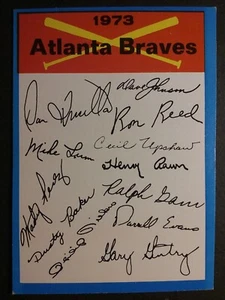 1973
Atlanta Braves
Dave Johnson
Ron Reed
Mike Lum
Cecil Upshaw
Henry Aaron
Marty Perez
Ralph Garr
Dusty Baker
Darrell Evans
Gary Gentry